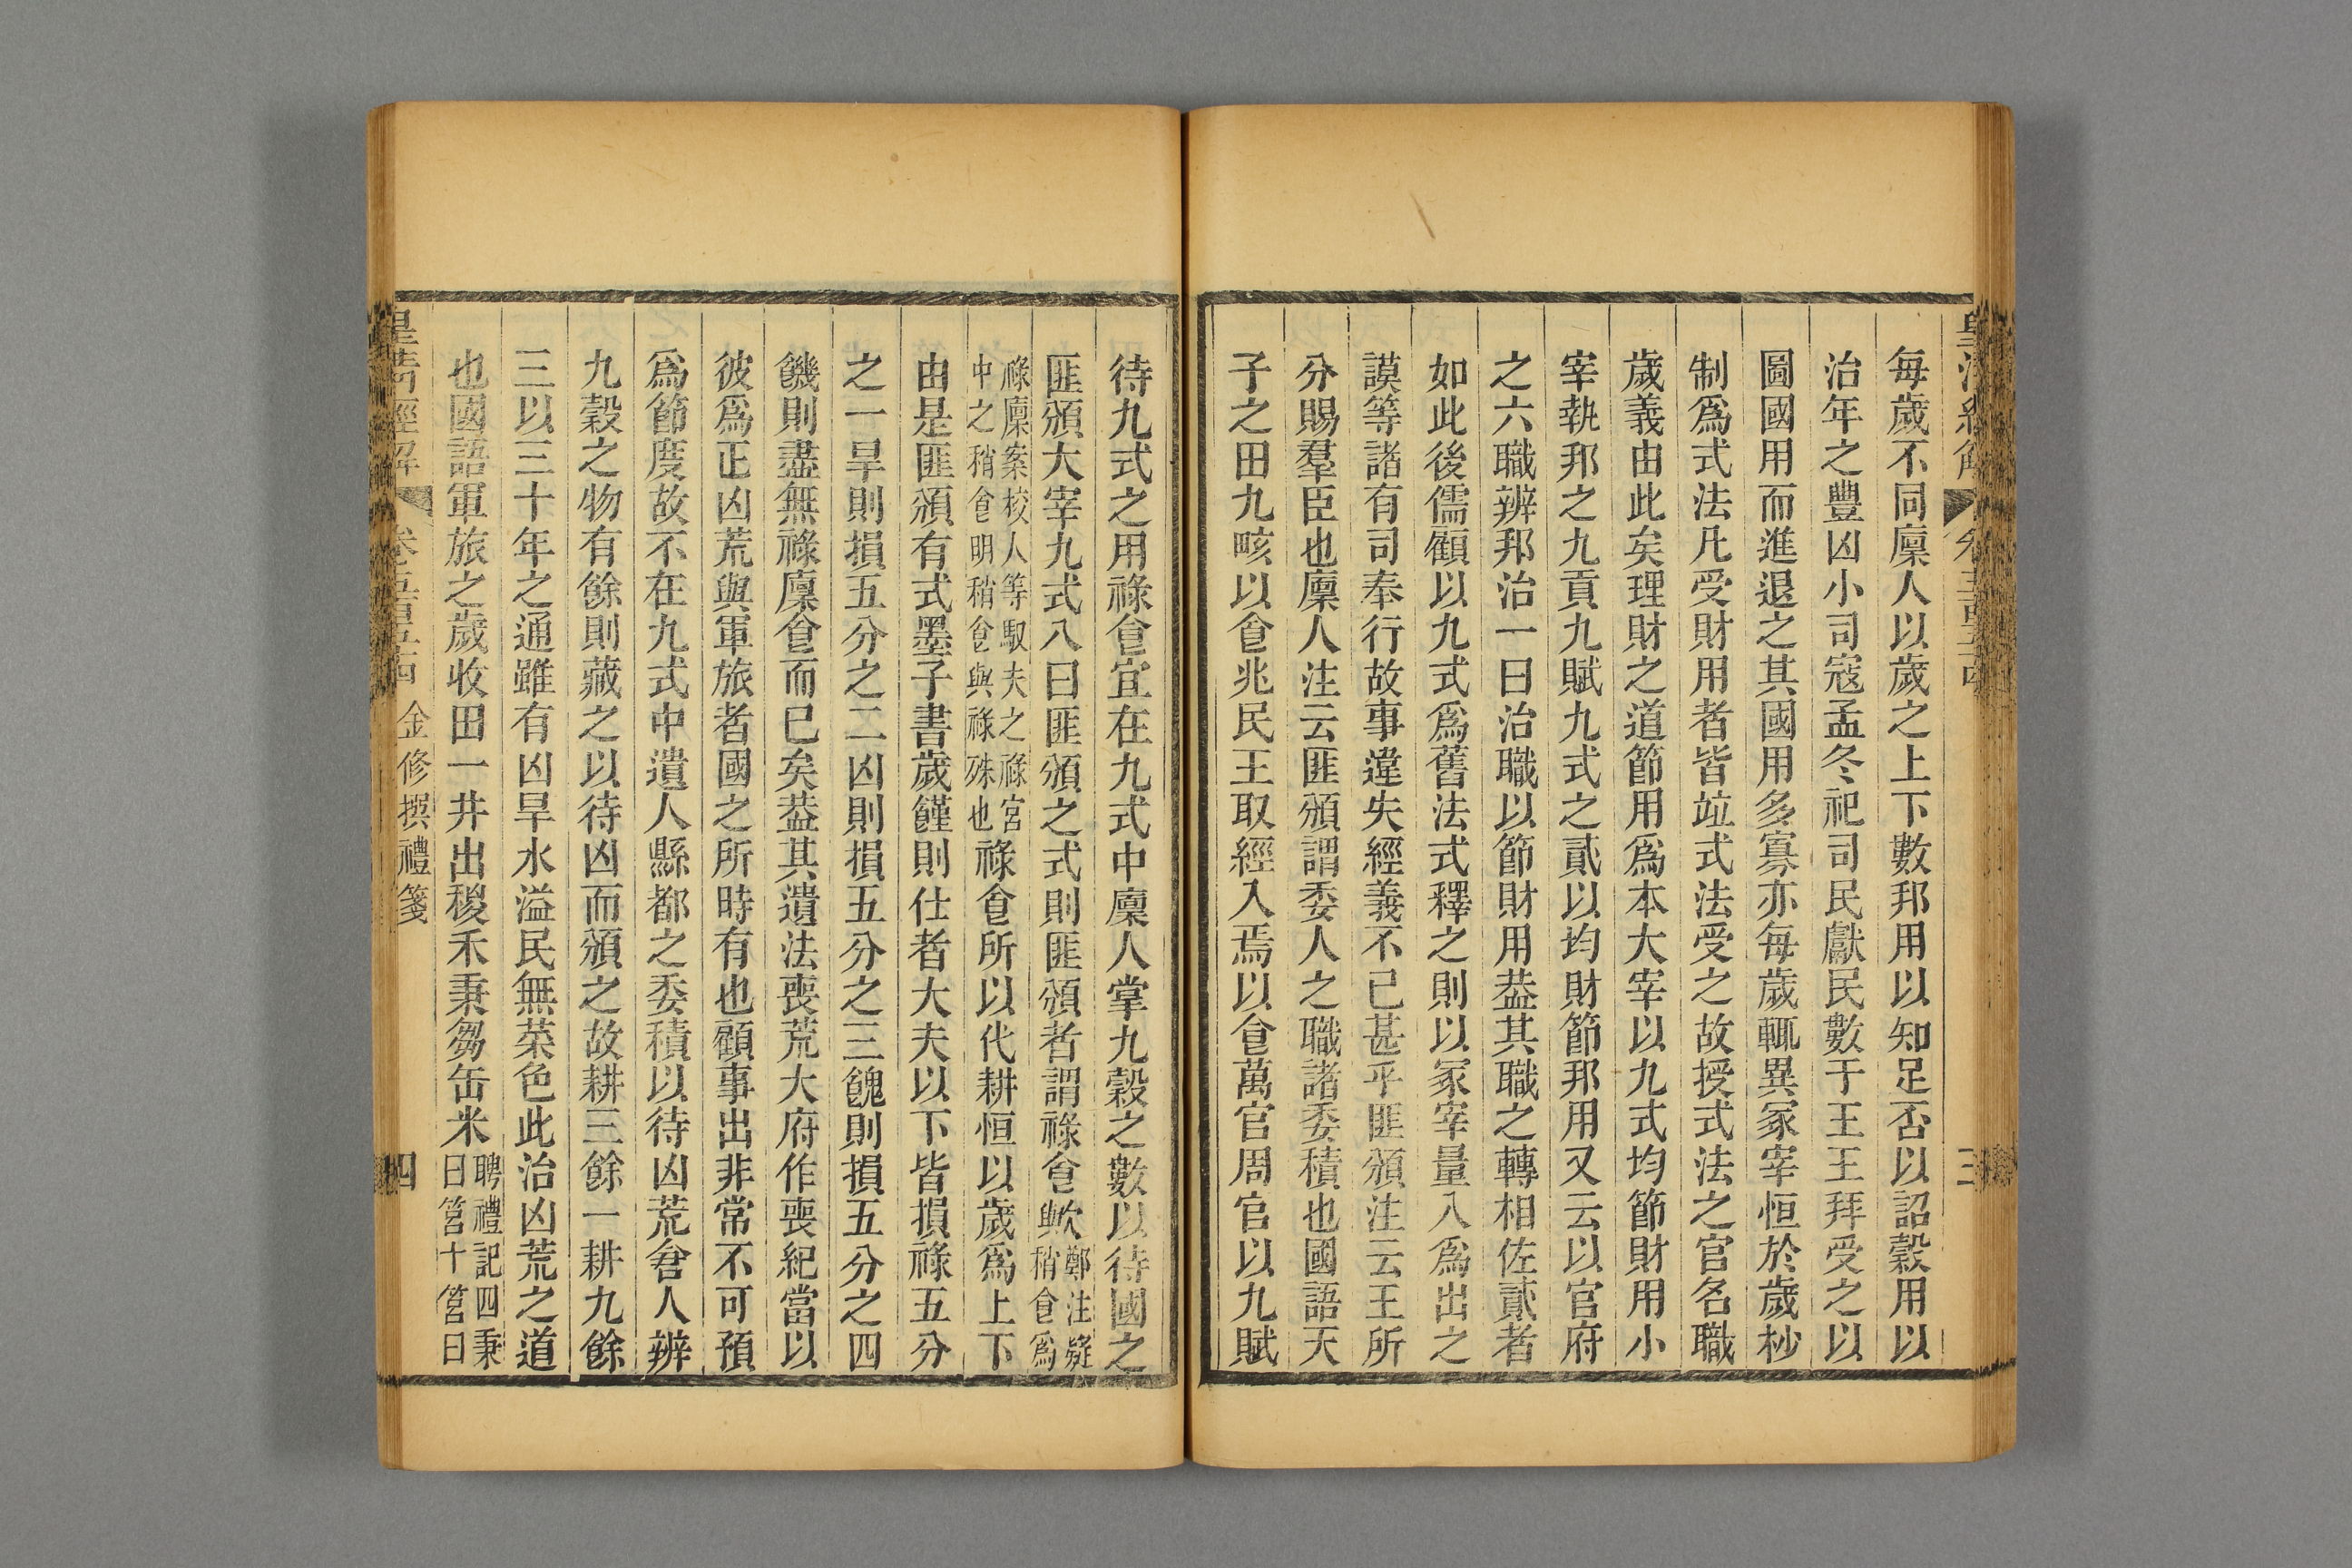 每歲不同廩人以歲之上下數邦用以知足否以詔穀用以
治年之豐凶小司寇孟冬祀司民獻民數于王王拜受之以
圖國用而進退之其國用多寡亦每歲輒異冢宰恒於歲杪
制爲式法凡受財用者皆竝式法受之故授式法之官名職
歲義由此矣理財之道節用爲本大宰以九式均節財用小
宰執邦之九貢九賦九式之貳以均財節邦用又云以官府
之六職辨邦治一曰治職以節財用葢其職之轉相佐貳者
如此後儒顧以九式爲舊法式釋之則以冢宰量入爲出之
謨等諸有司奉行故事違失經義不已甚乎匪頒注云王所
分賜羣臣也廩人注云匪頒謂委人之職諸委積也國語天
子之田九畡以㑹兆民王取經入焉以㑹萬官周官以九賦
待九式之用祿㑹宜在九式中廩人掌九穀之數以待國之
匪頒大宰九式八曰匪頒之式則匪頒者謂祿㑹歟
鄭注疑
稍㑹爲
祿廩案校人等馭夫之祿宮
中之稍㑹明稍㑹與祿殊也
祿㑹所以代耕恒以歲爲上下
由是匪頒有式墨子書歲饉則仕者大夫以下皆損祿五分
之一旱則損五分之二凶則損五分之三餽則損五分之四
饑則盡無祿廩㑹而已矣葢其遺法喪荒大府作喪紀當以
彼爲正凶荒與軍旅者國之所時有也顧事出非常不可預
爲節度故不在九式中遺人縣都之委積以待凶荒倉人辨
九穀之物有餘則藏之以待凶而頒之故耕三餘一耕九餘
三以三十年之通雖有凶旱水溢民無菜色此治凶荒之道
也國語軍旅之歲收田一井出稯禾秉芻缶米
聘禮記四秉
曰筥十筥曰
皇清經解 卷五百五十四 金修撰禮箋 四